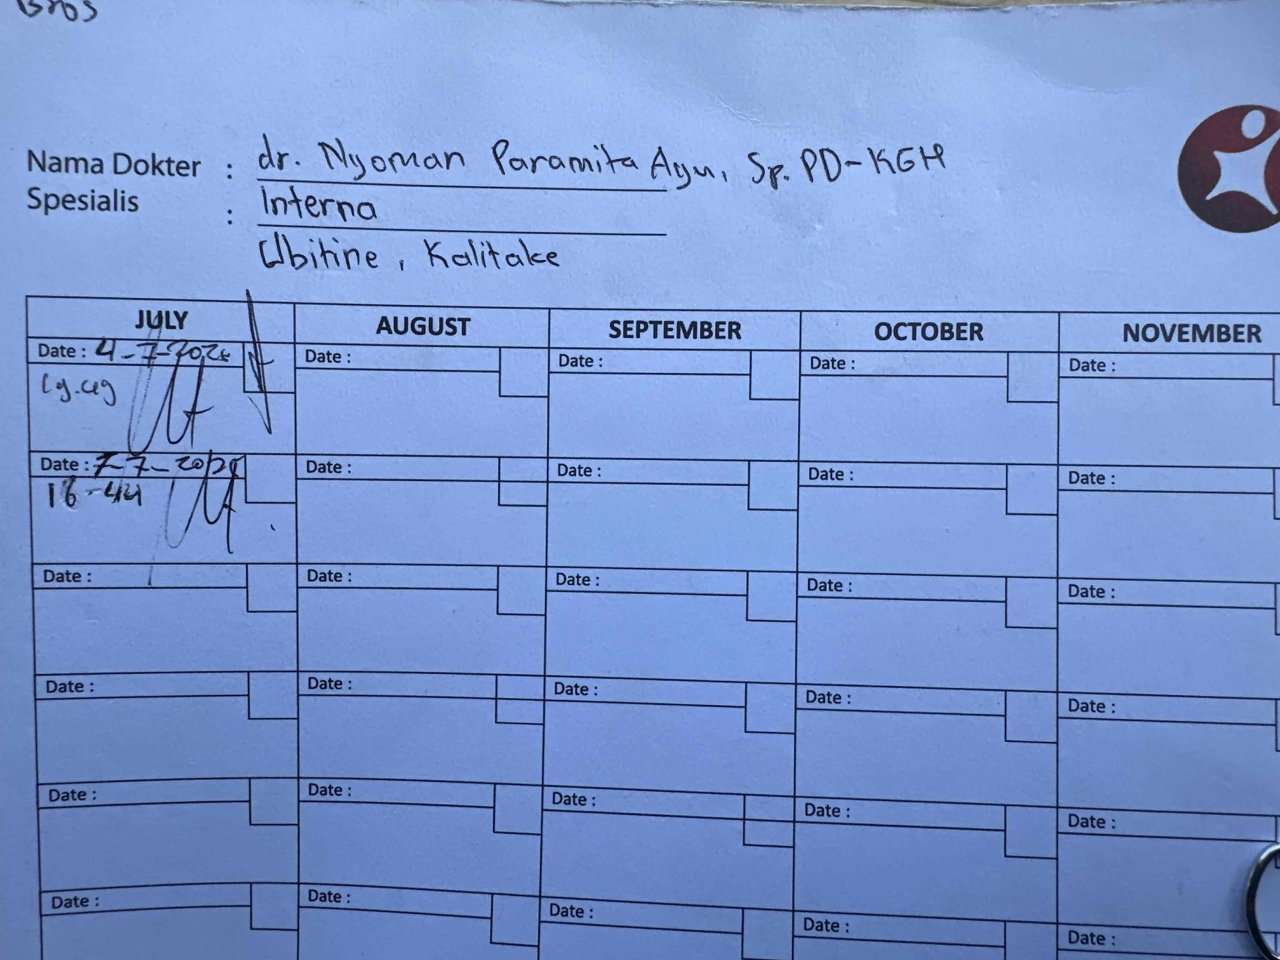 Bros
Nama Dokter : dr. Nyoman Paramita Ayu, Sp. PD-KGH
Spesialis : Interna
Ubitine, Kalitake
JULY AUGUST SEPTEMBER OCTOBER NOVEMBER
Date : 4-7-2025 Date : Date : Date : Date :
Date : 7-7-2025 Date : Date : Date : Date :
16-44
Date : Date : Date : Date : Date :
Date : Date : Date : Date : Date :
Date : Date : Date : Date : Date :
Date : Date : Date : Date : Date :